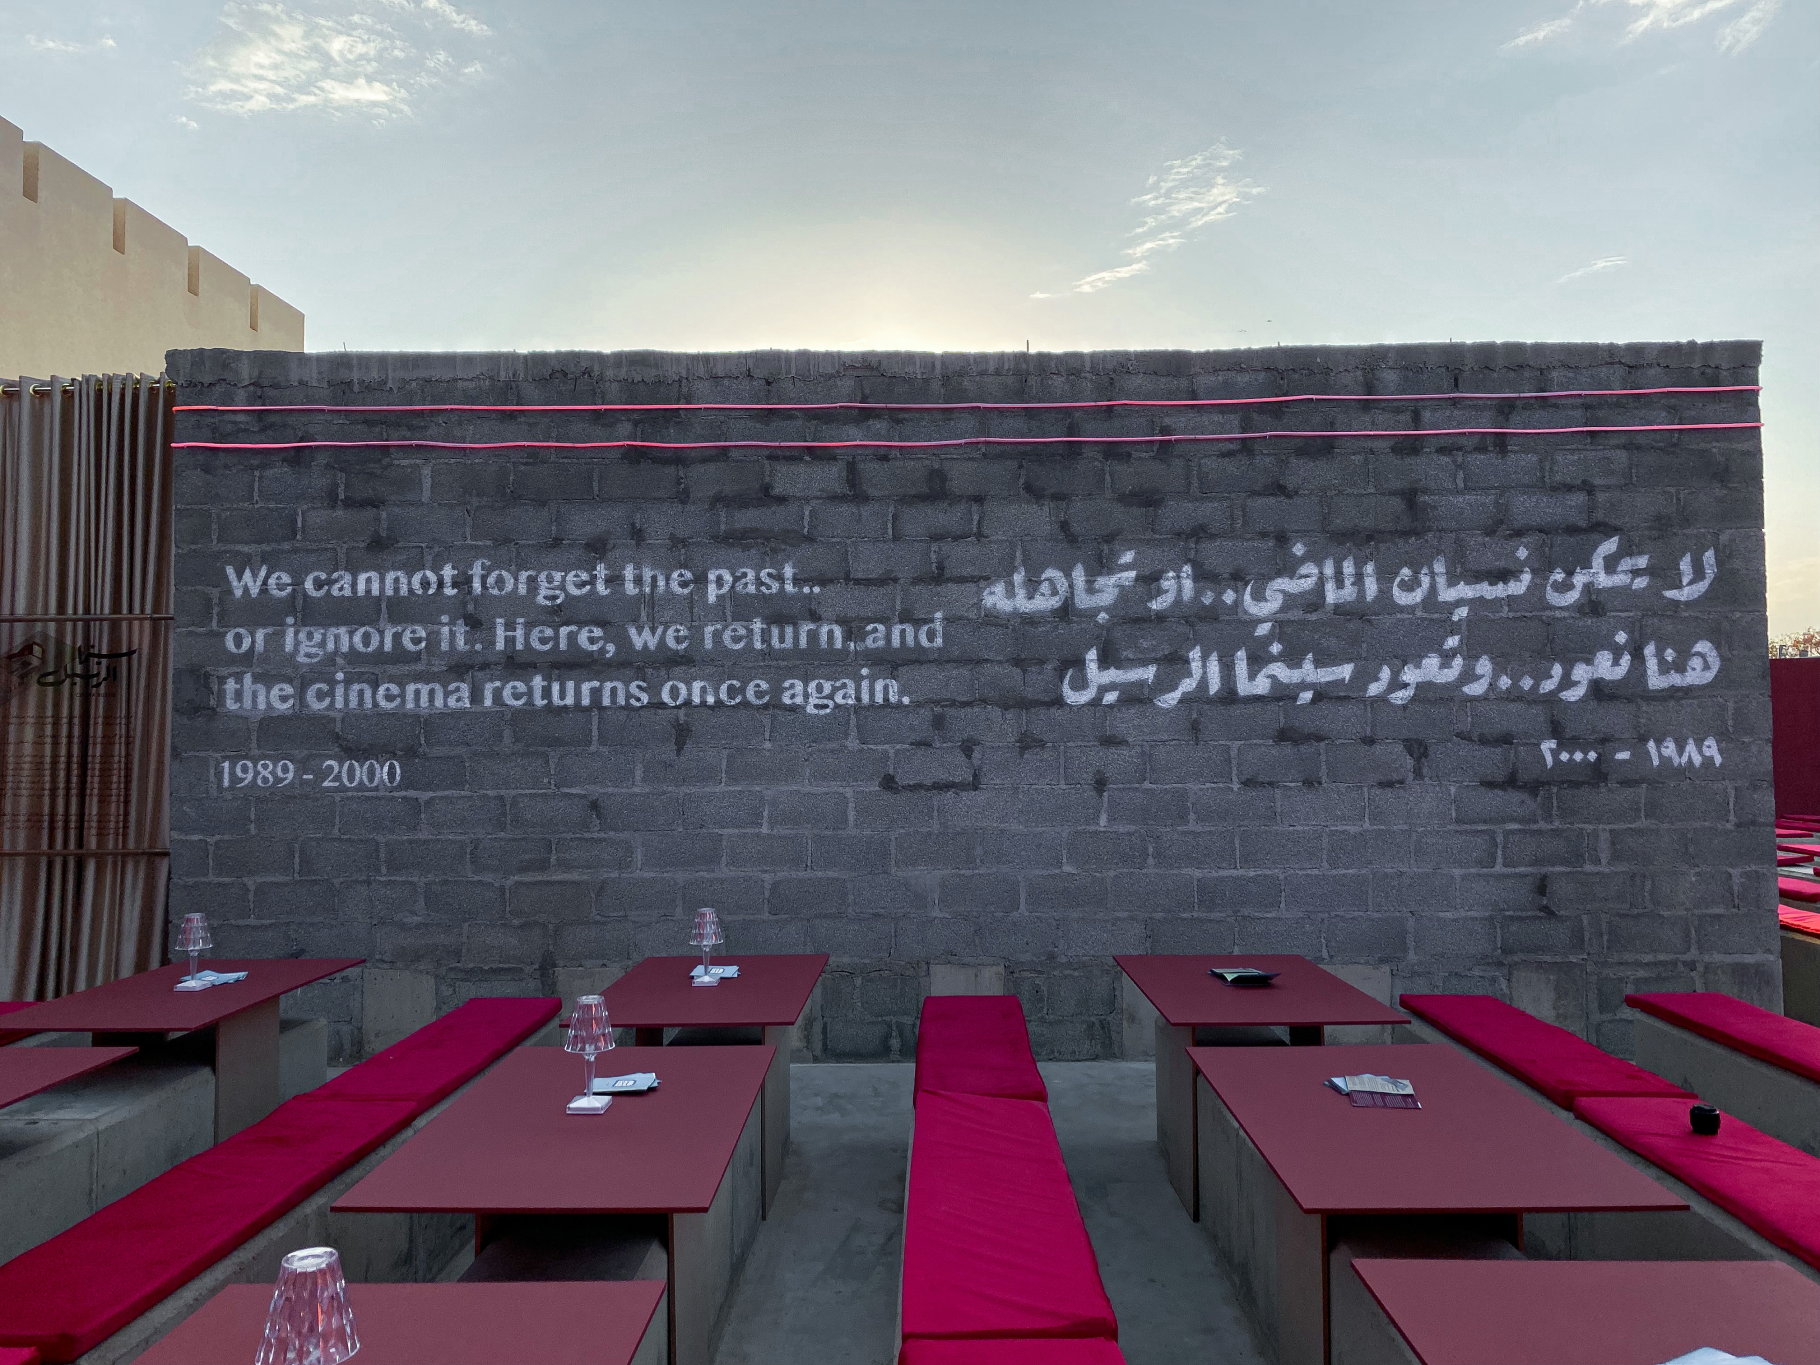 We cannot forget the past..
or ignore it. Here, we return, and
the cinema returns once again.
1989 - 2000
لا يمكن نسيان الماضي..او تجاهله
هنا نعود..وتعود سينما الرسيل
١٩٨٩ - ٢٠٠٠
سينما
الرسيل